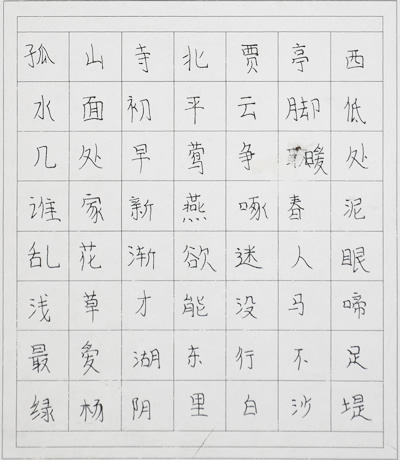 孤山寺北贾亭西
水面初平云脚低
几处早莺争暖处
谁家新燕啄春泥
乱花渐欲迷人眼
浅草才能没马啼
最愛湖东行不足
绿杨阴里白沙堤